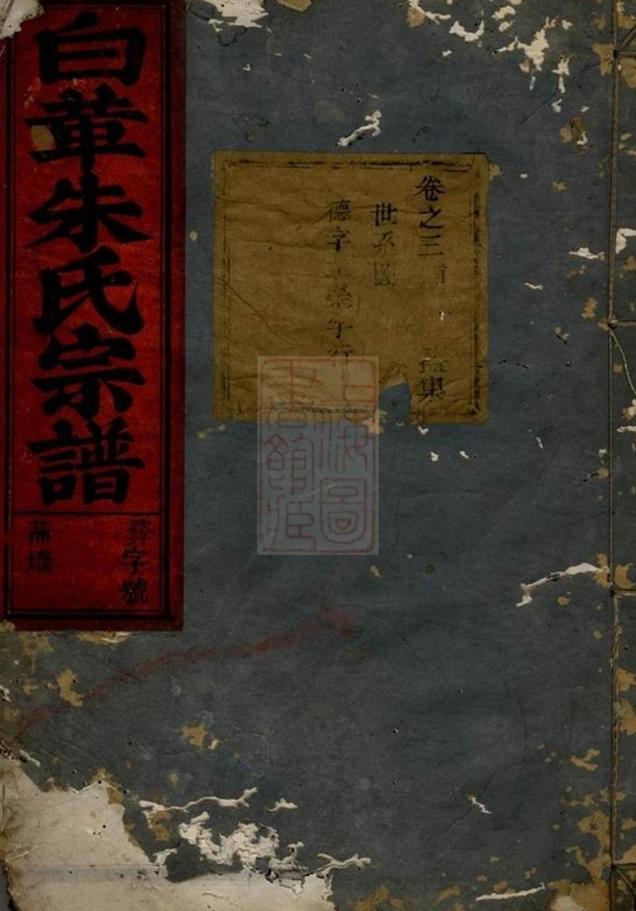 白萆朱氏宗譜
字號
蒲塘
卷之三 集
世系圖
德字 字行
上海圖
書館